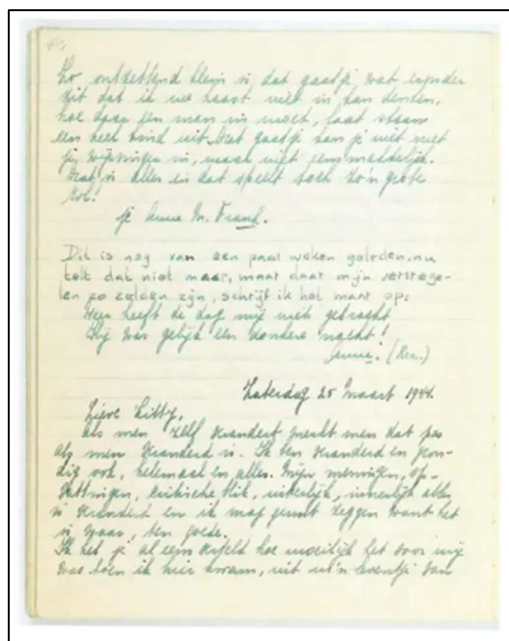 Zo ontzettend klein is dat gaatje wat eronder
zit dat ik me haast niet in kan denken,
hoe daar een man in moet, laat staan
een heel kind uit. Dat gaatje kan je niet met
je wijsvinger in, maar niet gemakkelijk.
Dat is alles en dat speelt toch zo'n grote
rol!
je Anne M. Frank.
Dit is nog van een paar weken geleden, nu
telt dat niet meer, maar daar mijn verzege-
len zo zelden zijn, schrijf ik het maar op:
Weer heeft de dag mij niet gebracht
Hij was gelijk een donkere nacht!
Anne. (Rev.)
Zaterdag 25 Maart 1944.
Lieve Kitty,
Als men zelf verandert merkt men dat pas
als men veranderd is. Ik ben veranderd en gron-
dig ook, helemaal en alles. Mijn meningen, op-
vattingen, kritische blik, uiterlijk, innerlijk alles
is veranderd en ik mag gerust zeggen want het
is waar, ten goede.
Ik heb je al eens verteld hoe moeilijk het voor mij
was toen ik hier kwam, uit m'n leventje van